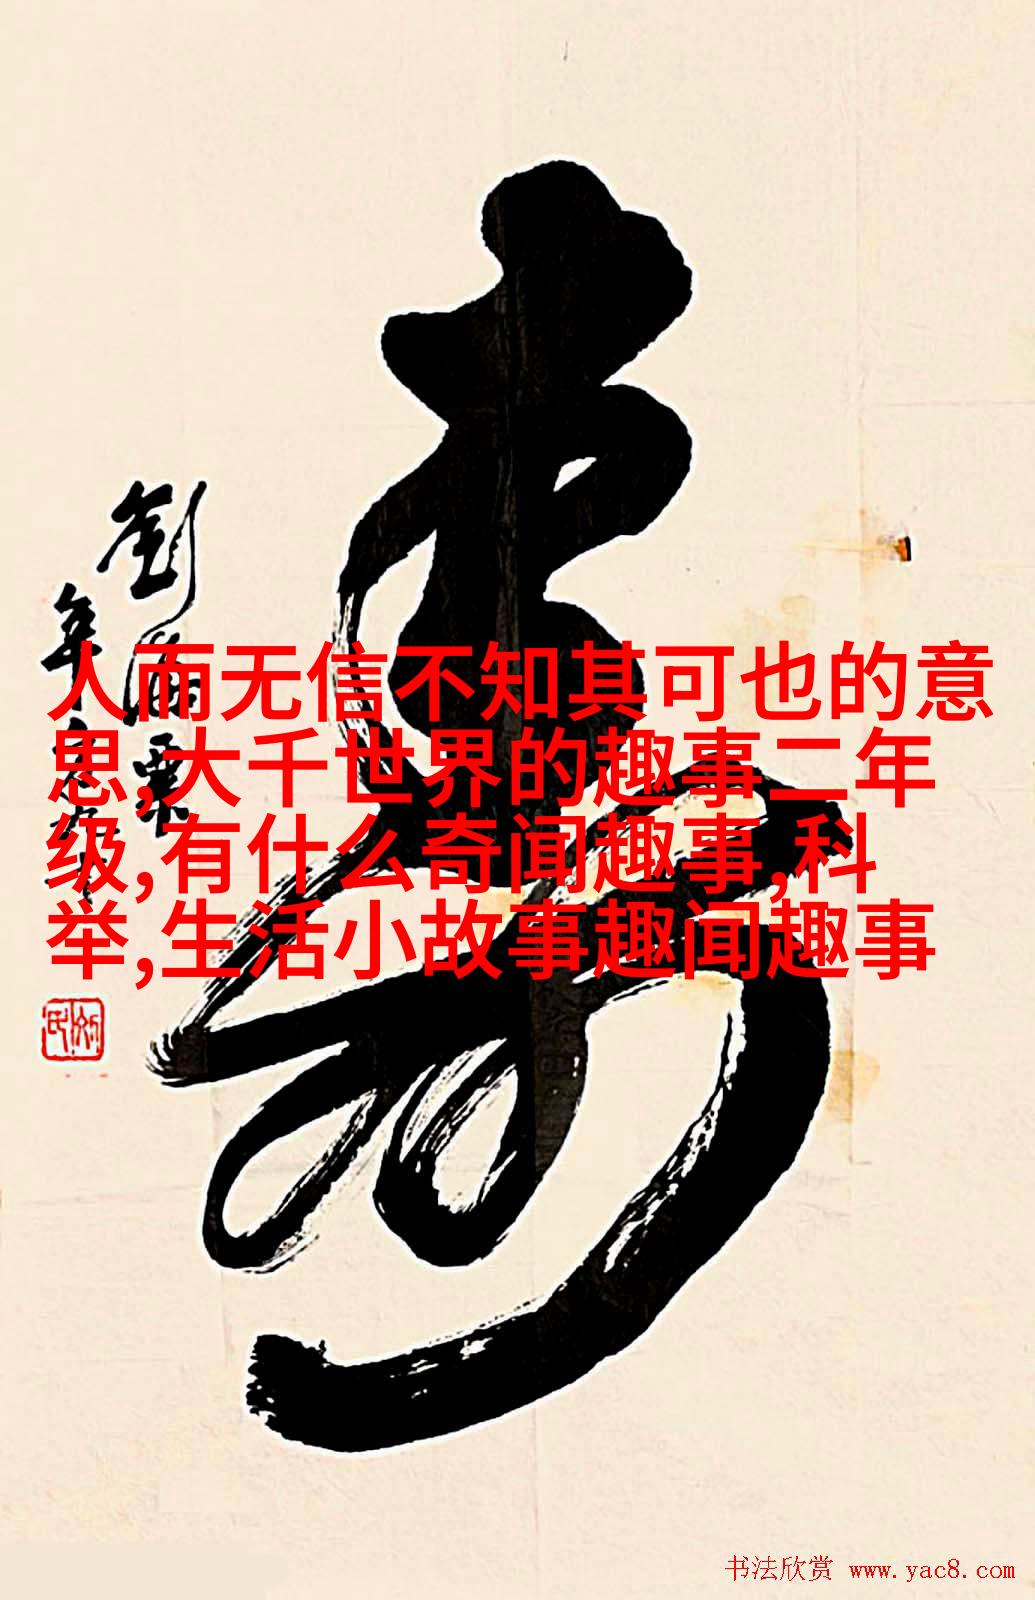 寿
人而无信不知其可也的意
思,大千世界的趣事二年
级,有什么奇闻趣事,科
举,生活小故事趣闻趣事
书法欣赏 www.yac8.com